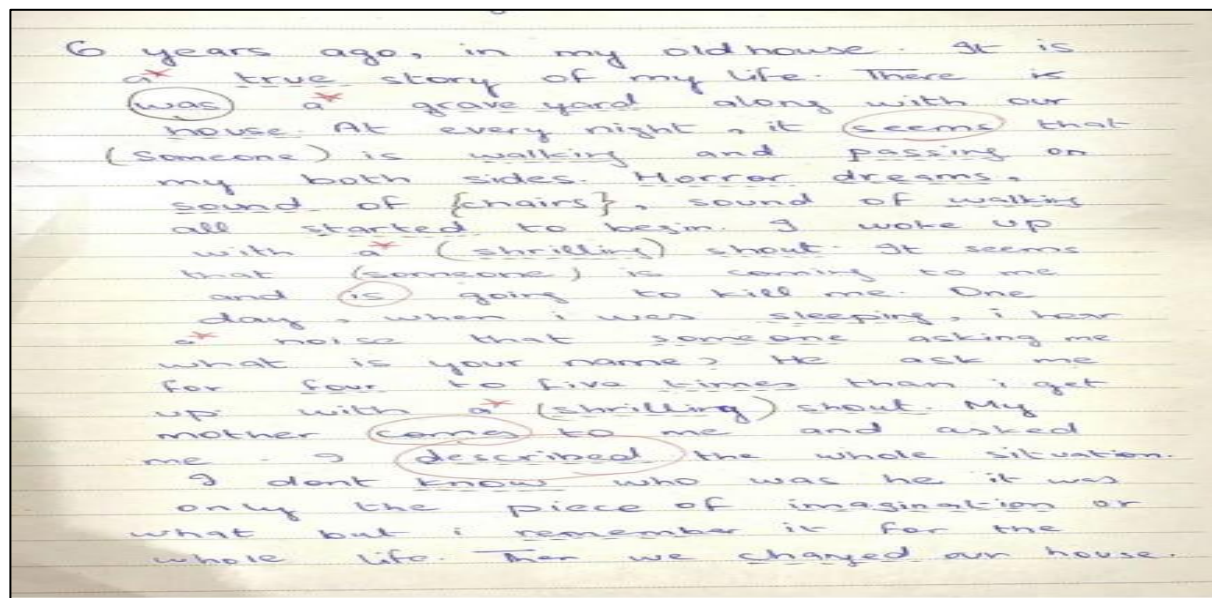 6 years ago, in my old house. It is
a* true story of my life. There is
(was) a* grave yard along with our
house. At every night, it seems that
(someone) is walking and passing on
my both sides. Horror dreams,
sound of {chairs}, sound of walking
all started to begin. I woke up
with a* (shrilling) shout. It seems
that (someone) is coming to me
and is going to kill me. One
day, when i was sleeping, i hear
a* noise that someone asking me
what is your name? He ask me
for four to five times than i get
up with a* (shrilling) shout. My
mother comes to me and asked
me. I described the whole situation.
I dont know who was he it was
only the piece of imagination or
what but i remember it for the
whole life. Then we changed our house.